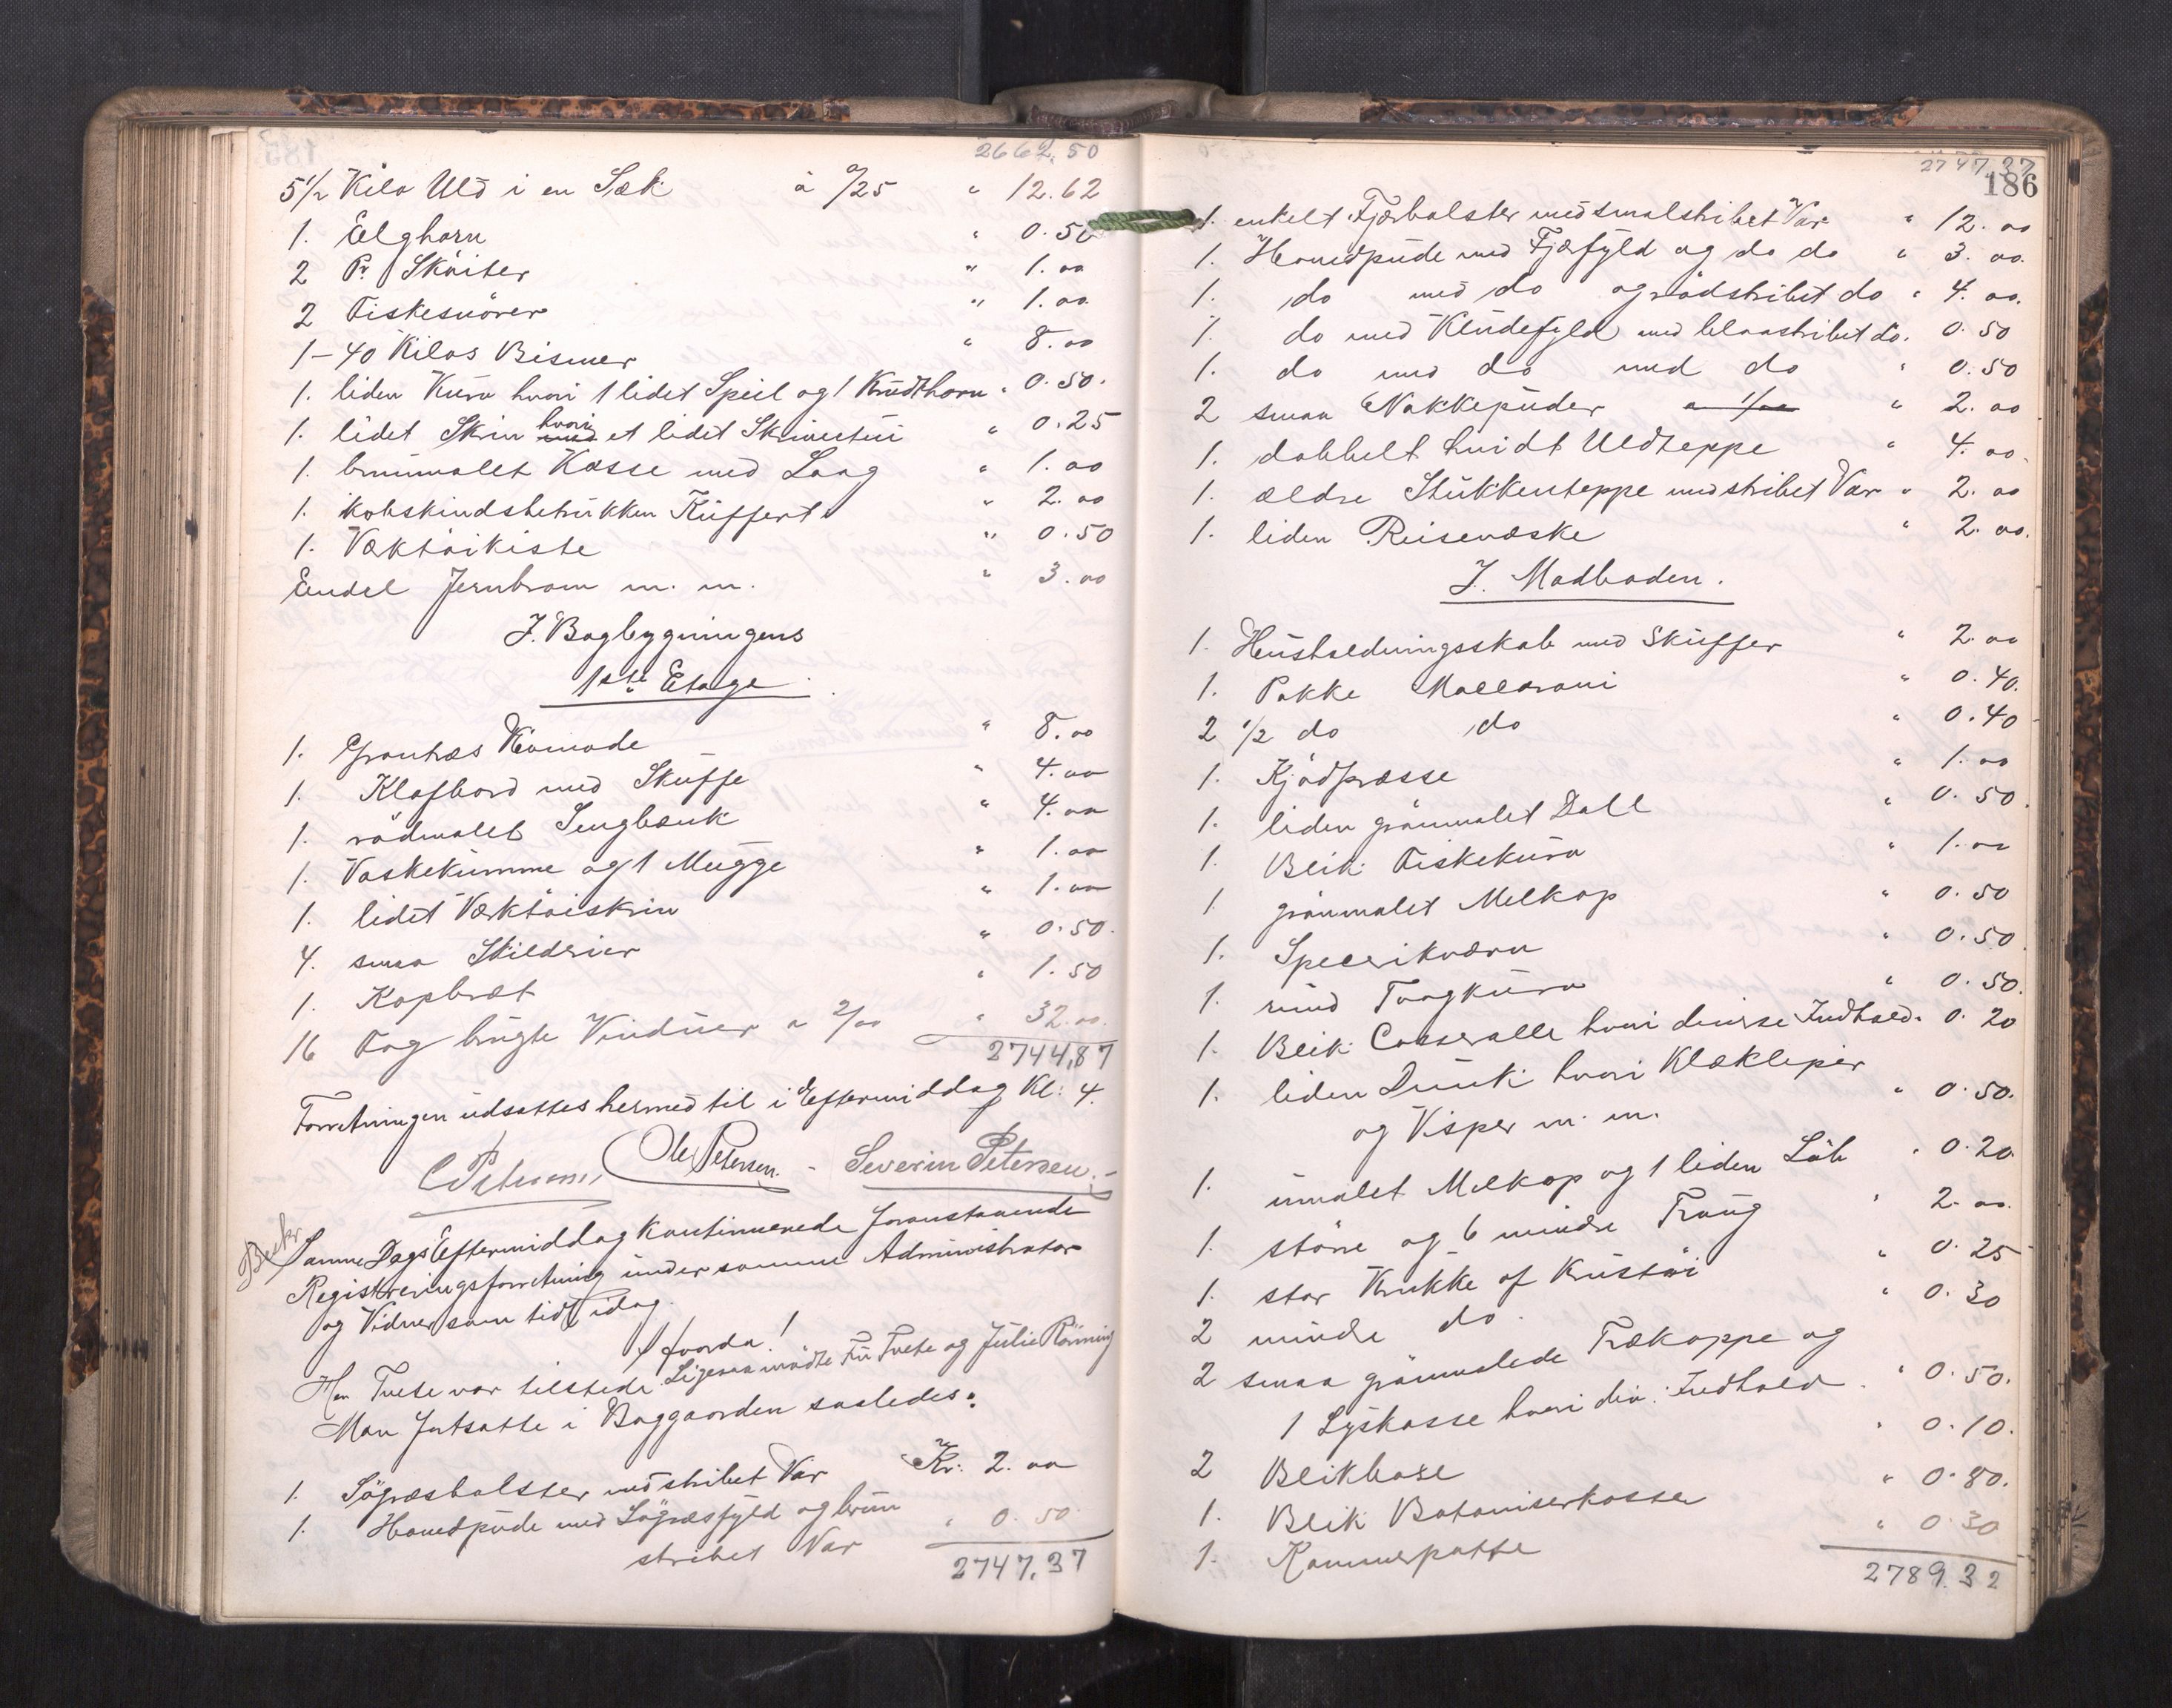 2662.50
5 1/2 Kilo Uld i en Sæk à 2/25 " 12.62
1. Eelghorn " 0.50
2 Pr Skøiter " 1.00
2 Fiskesnører " 1.00
1-40 Kilos Bismer " 8.00
1. liden Kurv hvori 1 lidet Speil og 1 Krudthorn " 0.50.
1. lidet Skrin hvori et lidet Skrivetui " 0.25
1. brunmalet Kasse med Laag " 1.00
1. kobskindsbetrukken Kuffert " 2.00
1. Væktøikiste " 0.50
Eendel Jernkram m. m. " 3.00
I. Bagbygningens
1ste Etage
1. Grantræs Komode " 8.00
1. Klafbord med Skuffe " 4.00
1. rødmalet Sengbænk " 4.00
1. Vaskekumme og 1 Mugge " 1.00
1. lidet Værktøiskrin " 1.00
4. smaa Skilderier " 0.50.
1. Kopbræt " 1.50
16 Fag brugte Vinduer a 2/00 " 32.00.
2744,87
Forretningen udsattes hermed til i Eftermiddag Kl: 4.
Ole Petersen. - Severin Petersen.-
Samme Dags Eftermiddag kontinuerede foranstaaende
Registreringsforretning under samme Administrator
og Vidner som tidl idag.
Hr Tvete var tilstede. Ligesaa mødte Fru Tvete og Julie Rønning
Man fortsatte i Baggaarden saaledes:
1. Søgræsbolster med stribet Vår Kr: 2.00
1. Hovedpude med Søgræsfyld og brun
stribet Var " 0.50
2747.37
2747.37
186
1. enkelt Fjærbolster med smalstribet Var " 12.00
1. Hovedpude med Fjæfyld og do do " 3.00.
1. do med do og rødstribet do " 4.00.
1. do med Kludefyld med blaastribet do. 0.50
1. do med do med do " 0.50
2 smaa Nakkepuder a 1/00 " 2.00
1. dobbelt hvidt Uldteppe " 4.00.
1. ældre Stukkenteppe med stribet Vår " 2.00
1. liden Reisevæske " 2.00.
I. Madboden.
1. Husholdningsskab med Skuffer " 2.00
1. Pakke Maccaroni " 0.40.
2 1/2 do do " 0.40
1. Kjødpresse " 1.00
1. liden grønmalet Dall " 0.50.
1. Blik Fiskekurv " 1.00
1. grønmalet Melkop " 0.50
1. Specerikværn " 0.50
1. rund Torgkurv " 0.50.
1. Blik Casseralle hvori diverse Indhold " 0.20
1. liden Dunk hvori Klækleper
og Visper m. m. " 0.50.
1. umalet Melkop og 1 liden Løb " 0.20
1. større og 6 mindre Traug " 2.00.
1. stor Krukke af Krustøi " 0.25
2 mindre do " 0.30
2 smaa grønmalede Trækoppe og
1 Lyskasse hvori div: Indhold " 0.50.
2 Blikbaxe " 0.10.
1. Blik Botaniserkasse " 0.80.
1. Kammerpotte " 0.30
2789.32